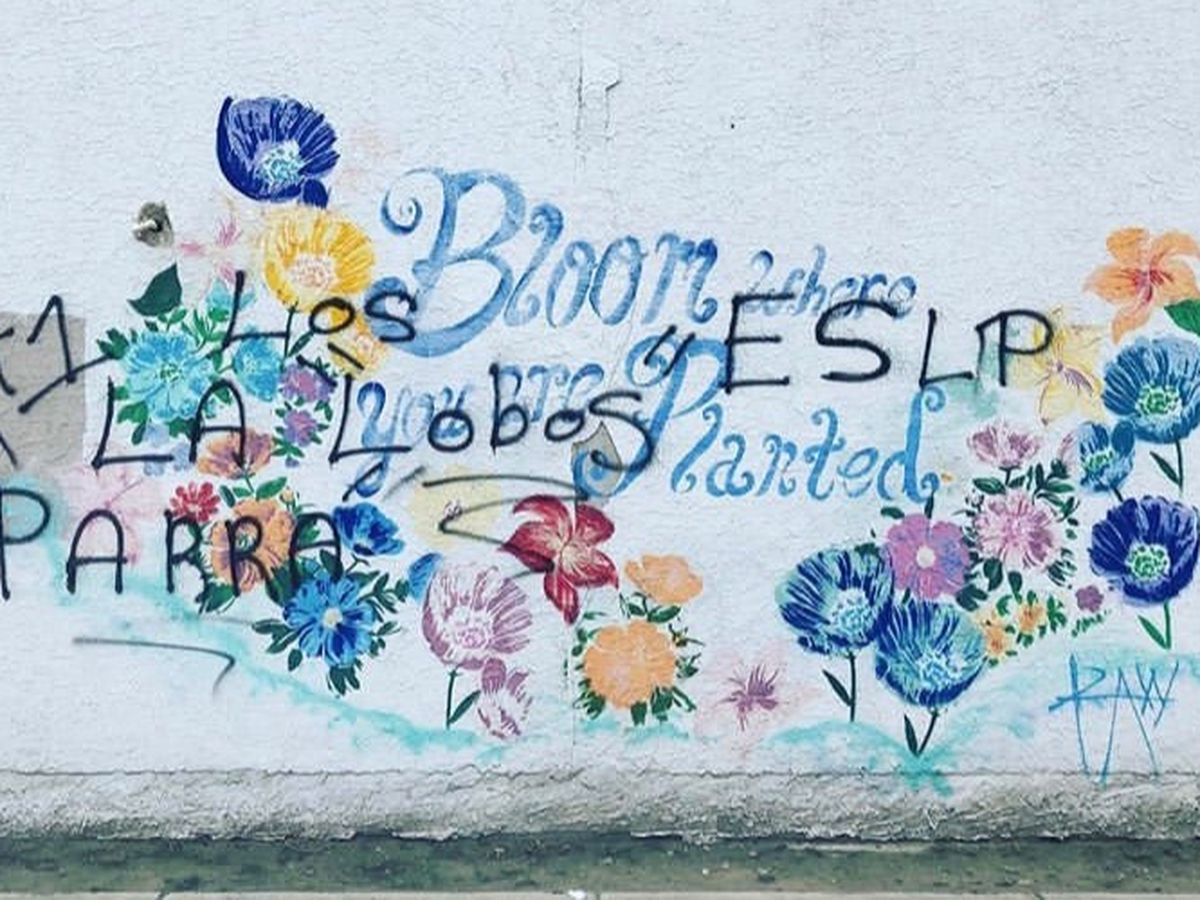 Bloom where
you are Planted
Los
LA Lobos y ESLP
PARRA
RAW